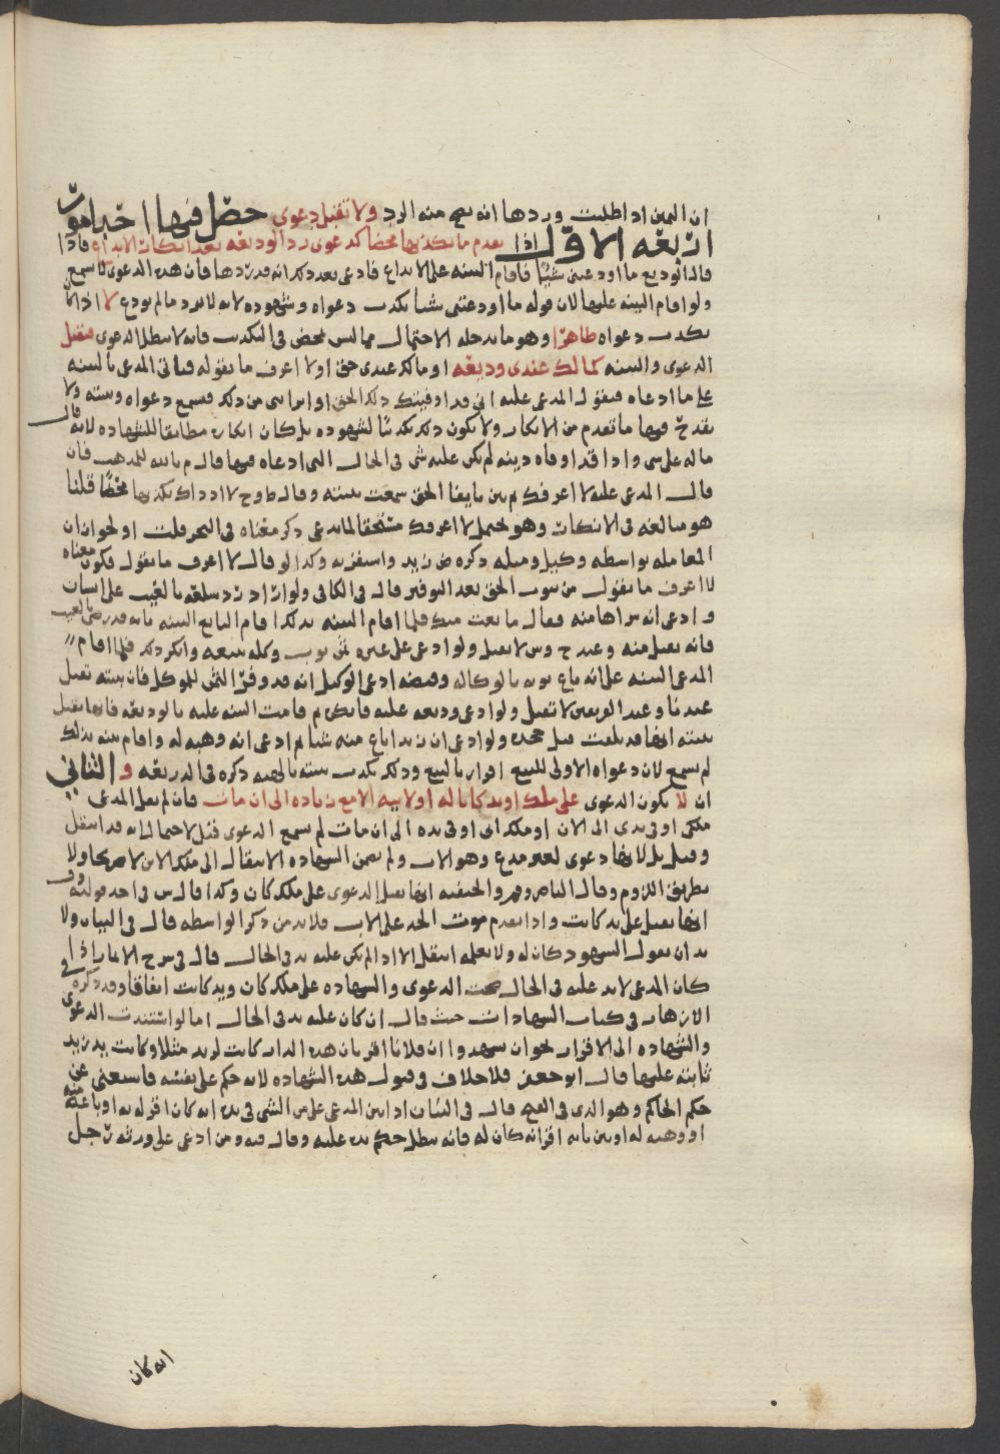 ان اليمين اذا طلبت وردها انه يصح منه الرد ولا تقبل دعوى حصل فيها احد امور
اربعه الاول اذا تقدم ما يكذبها محضا كدعوى رد الوديعه بعد انكار الايداع فاذا
قال الوديع ما اودعتنى شيئا فاقام البينه على الايداع فادعى بعد ذلك انه قد ردها فان هذه الدعوى لا تسمع
ولو اقام البينه عليها لان قوله ما اودعتنى شيئا يكذب دعواه وشهوده لانه لا يرد ما لم يودع لا اذا كان
يكذب دعواه ظاهرا وهو ما يدخله الاحتمال مما ليس بمحض فى التكذيب فانه لا يبطل الدعوى فتقبل
الدعوى والبينه كما لك عندى وديعه او ما لك عندى حق او لا اعرف ما تقوله فياتى المدعى بالبينه
على ما ادعاه فيقول المدعى عليه انى قد اوفيتك ذلك الحق او ابرانى من ذلك فتسمع دعواه وبينته ولا
يقدح فيها ما تقدم من الانكار ولا يكون ذلك تكذيبا لشهوده بل كان انكاره مطابقا للشهاده لانه قال
ماله على شى واذا قد اوفاه دينه لم يكن عليه شى فى الحال التى ادعاه فيها قال م بالله للمذهب فان
قال المدعى عليه لا اعرفك ثم بين بايفا الحق سمعت بينته وقال طوح لا اذ ذاك يكذبها محضا قلنا
هو مبالغه فى الانكار وهو يحتمل لا اعرفك مستحقا لما تدعى ذكر معناه فى البحر قلت او لجواز ان
المعامله بواسطه وكيل ومثله ذكره ض زيد واستقر به وكذا لو قال لا اعرف ما تقول فيكون معناه
لا اعرف ما تقول من ثبوت الحق بعد التوفير قاله فى الكافى ولو اراد رد سلعه بالعيب على انسان
وادعى انه شراها منه فقال ما بعت منك فلما اقام البينه بذلك اقام البايع البينه بانه قد رضى بالعيب
فانه يقبل منه وعند ح وش لا يقبل ولو ادعى على غيره ثمن ثوب وكله ببيعه وانكر ذلك فلما اقام
المدعى البينه على انه باع ثوبه بالوكاله وقبضه ادعى الوكيل انه قد وفر الثمن للموكل فان بينته تقبل
عندنا وعند الفريقين لا تقبل ولو ادعى وديعه عليه فانكر ثم قامت البينه عليه بالوديعه فانها تقبل
بينته انها قد تلفت قبل جحده ولو ادعى ان زيدا باع منه شيا ثم ادعى انه وهبه له واقام بينه بذلك
لم تسمع لان دعواه الاولى للبيع اقرار بالبيع وذلك يكذب بينته بالهبه ذكره فى الذريعه و الثانى
ان لا تكون الدعوى على ملك او يد كانا له او لابيه الا مع زياده الى ان مات فان لم يقل المدعى
ملكى او فى يدى الى الان او ملك ابى او فى يده الى ان مات لم تسمع الدعوى قيل لاحتمال انه قد انتقل
وقيل بل لانها دعوى لغير مدع وهو الاب ولم تضمن الشهاده الانتقال الى ملك الابن لا صريحا ولا
بطريق اللزوم وقال الناصر وم والحنفيه انها تقبل الدعوى على ملك كان وكذا قال س فى احد قوليه وف
انها تقبل على يد كانت واذا تقدم موت الجد على الاب فلا بد من ذكر الواسطه قال فى البيان ولا
بد ان يقول الشهود كان له ولا نعلمه انتقل الا اذا لم يكن عليه يد فى الحال قال فى شرح الاثمار اذا
كان المدعى لا يد عليه فى الحال صحت الدعوى والشهاده على ملك كان ويد كانت اتفاقا وقد ذكره فى
الازهار فى كتاب الشهادات حيث قال ان كان عليه يد فى الحال اما لو استندت الدعوى
والشهاده الى الاقرار نحو ان شهدوا ان فلانا اقر بان هذه الدار كانت لزيد مثلا وكانت يد زيد
ثابته عليها قال ابو جعفر فلا خلاف فى قبول هذه الشهاده لانه حكم على نفسه فاستغنى عن
حكم الحاكم وهو الذى فى الفتح قال فى البيان اذا بين المدعى على من الشى فى يده انه كان اقر له به او باعه منه
او وهبه له او بين بانه اقر انه كان له فانه يبطل حكم يده عليه وقال فيه ومن ادعى على ورثه رجل
انه كان